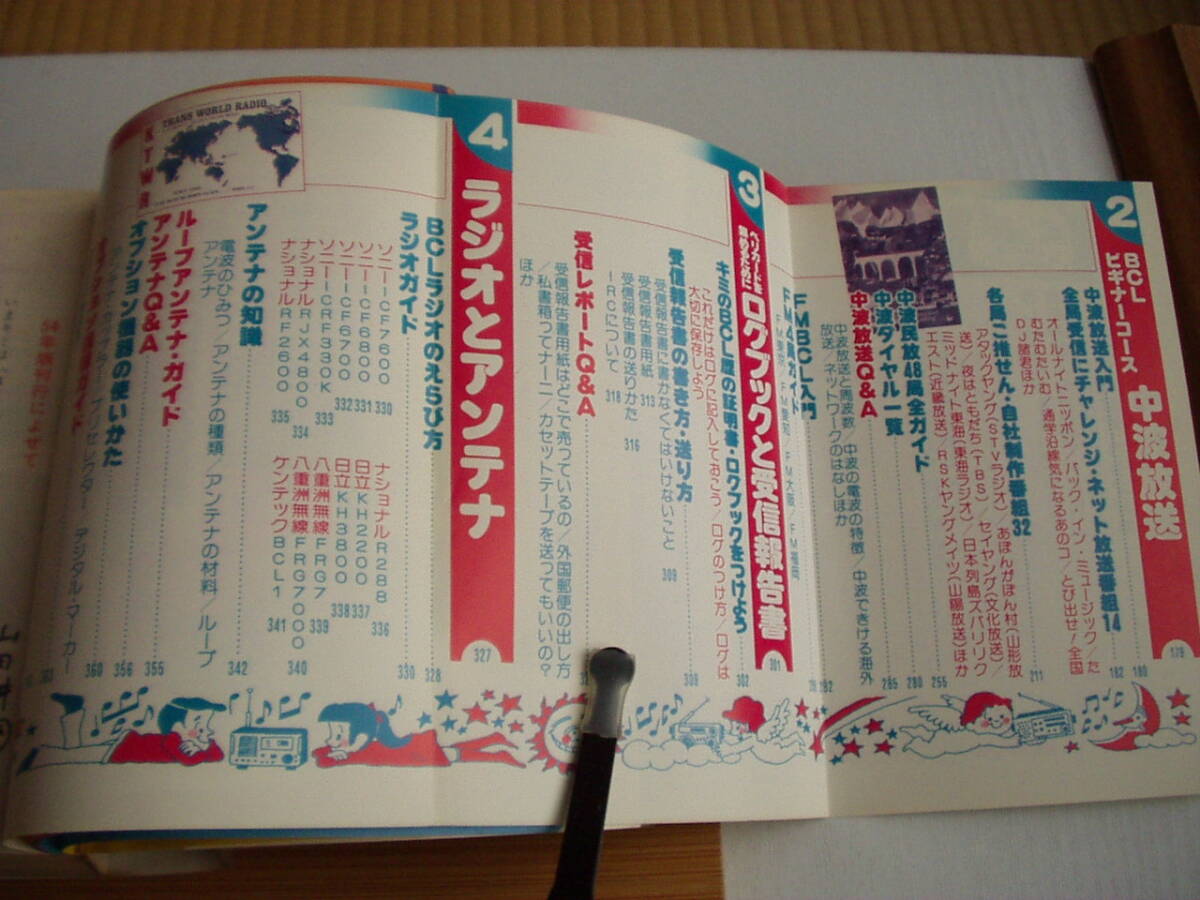 2
BCL
ビギナーコース
中波放送
179
中波放送入門
180
全局受信にチャレンジ・ネット放送番組14
182
オールナイトニッポン/パック・イン・ミュージック/た
むたむたいむ 通学沿線気になるあのコ/とび出せ!全国
DJ諸君ほか
各局ご推せん・自社制作番組32
211
アタックヤング(STVラジオ) あぼんがぽん村(山形放
送)/夜はともだち(TBS)/セイヤング(文化放送)/
ミッドナイト東海(東海ラジオ)/日本列島ズバリリク
エスト(近畿放送)/RSKヤングメイツ(山陽放送)ほか
255
中波民放48局全ガイド
280
中波ダイヤル一覧
285
中波放送Q&A
中波放送と周波数/中波の電波の特徴/中波できける海外
放送/ネットワークのはなしほか
FMBCL入門
292
FM4局ガイド
FM東京/FM愛知/FM大阪/FM福岡
3
ベリカードを
集めるために
ログブックと受信報告書
301
キミのBCL歴の証明書・ログブックをつけよう
302
これだけはログに記入しておこう/ログのつけ方/ログは
大切に保存しよう
受信報告書の書き方・送り方
309
受信報告書に書かなくてはいけないこと
309
受信報告書用紙
313
受信報告書の送りかた
316
IRCについて
318
受信レポートQ&A
受信報告書用紙はどこで売っているの/外国郵便の出し方
/私書箱ってナーニ/カセットテープを送ってもいいの?
ほか
4
ラジオとアンテナ
327
BCLラジオのえらび方
328
ラジオガイド
330
ソニーICF7600
330
ソニーICF6800
331
ソニーICF6700
332
ソニーCRF330K
333
ナショナルRJX4800
334
ナショナルRF2600
335
ナショナルR288
336
日立KH2200
337
日立KH3800
338
八重洲無線FRG7
339
八重洲無線FRG7000
340
ケンテックBCL1
341
アンテナの知識
342
電波のひみつ/アンテナの種類/アンテナの材料/ループ
アンテナ
ループアンテナ・ガイド
355
アンテナQ&A
356
オプション機器の使いかた
360
プリセレクター デジタル・マーカー
KTWR
TRANS WORLD RADIO